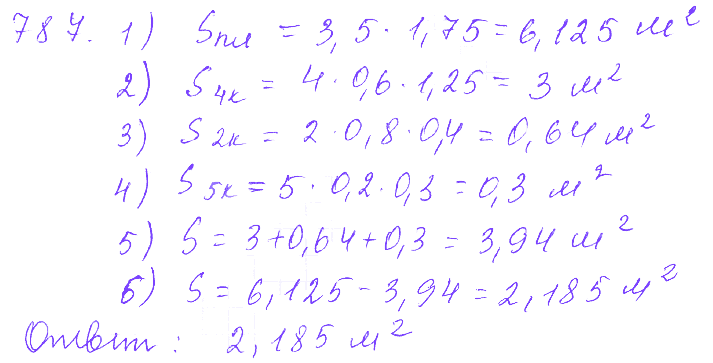 787. 1) Sпл = 3,5 · 1,75 = 6,125 м²
2) S4к = 4 · 0,6 · 1,25 = 3 м²
3) S2к = 2 · 0,8 · 0,4 = 0,64 м²
4) S5к = 5 · 0,2 · 0,3 = 0,3 м²
5) S = 3 + 0,64 + 0,3 = 3,94 м²
6) S = 6,125 - 3,94 = 2,185 м²
Ответ: 2,185 м²